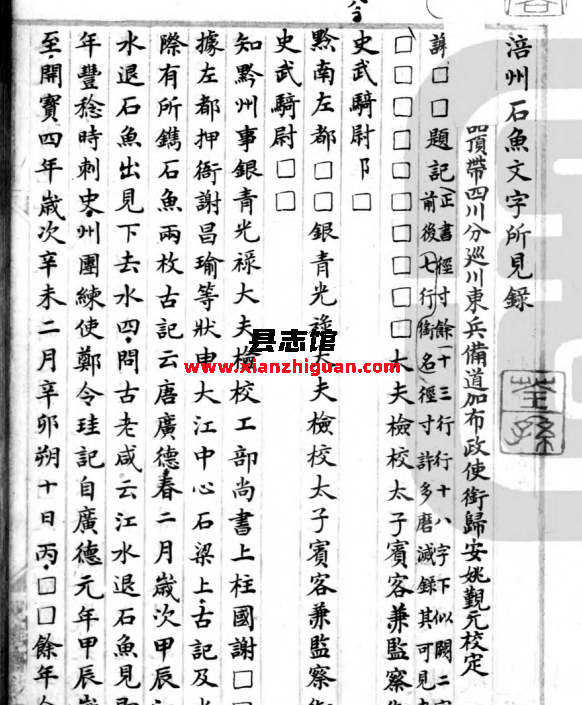 涪州石魚文字所見録
荃孫
品頂帶四川分巡川東兵備道加布政使銜歸安姚覲元校定
謝□□題記
正書徑寸餘十三行行十八字下似闕二
前後七行銜名徑寸許多磨滅録其可見
□□□□□□□□□□大夫檢校太子賓客兼監察
史武騎尉卩□
黔南左都□□銀青光祿大夫檢校太子賓客兼監察
史武騎尉□□
知黔州事銀青光祿大夫檢校工部尚書上柱國謝□
據左都押衙謝昌瑜等狀申大江中心石梁上古記及
際有所鐫石魚兩枚古記云唐廣德春二月歲次甲辰
水退石魚出見下去水四問古老咸云江水退石魚見
年豐稔時刺史州團練使鄭令珪記自廣德元年甲辰
至開寶四年歲次辛未二月辛卯朔十日丙□□餘年
县志馆
www.xianzhiguan.com